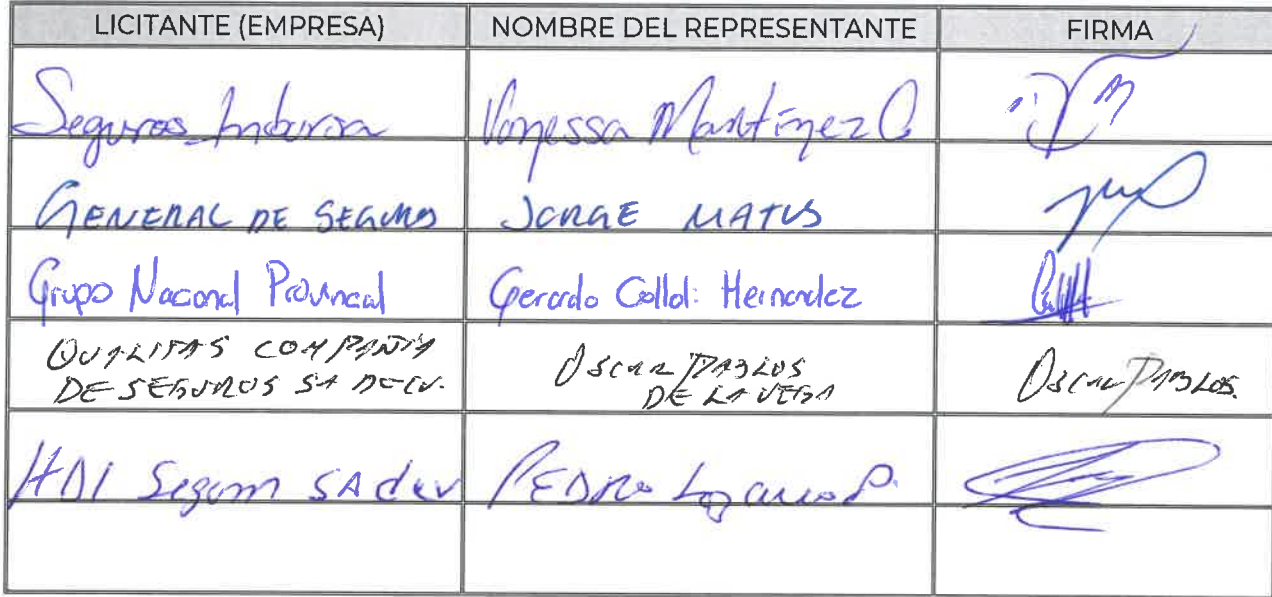 LICITANTE (EMPRESA) NOMBRE DEL REPRESENTANTE FIRMA
Seguros Inbursa Vanessa Martínez C
GENERAL DE SEGUROS JORGE MATUS
Grupo Nacional Provincial Gerardo Collol: Hernandez
QUALITAS COMPAÑIA OSCAR PABLOS
DE SEGUROS SA DE CV. DE LA VEGA OSCAR PABLOS.
HDI Seguros SA de cv PEDRO Lozano P.